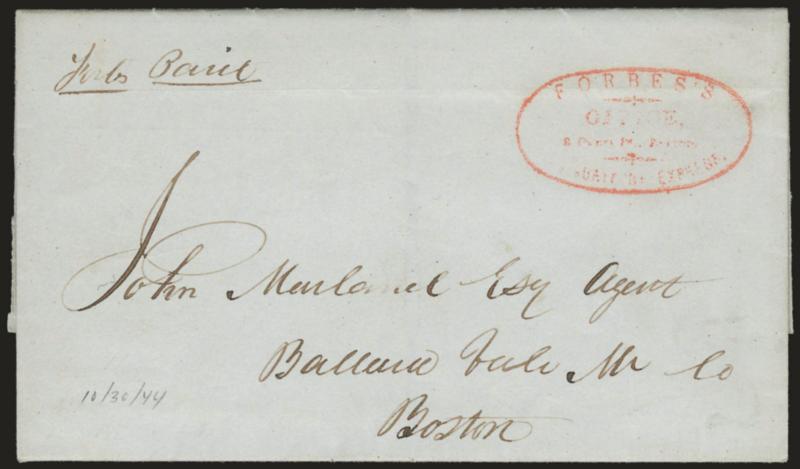 Forbs Paid
FORBES'S
OFFICE,
8 Court St., Boston,
EXPRESS.
John Marland Esq Agent
Ballard Vale M Co
Boston
10/30/44